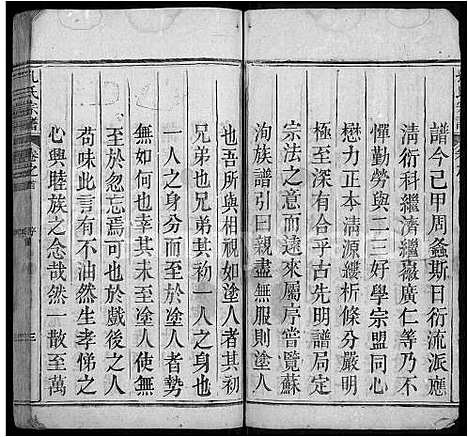 譜今已甲周螽斯日衍流派應
清衍科繼濟繼薇廣仁等可不
憚勤勞與二三好學宗盟同心
懋力正本清源縷析條分嚴明
至極深有合乎古先明譜局定
宗法之意遠來屬序嘗覽蘇
洵族譜引曰親盡無服則塗人
也吾所與相視如塗人者其初
兄弟也兄弟其初一人之身也
一人之身分而至於塗人者勢
也勢無如何其未至塗人使無
至於忽忘焉可也於戲後之人
苟味此言有不油然生孝悌之
心與睦族之念哉然一散至萬
孔氏宗譜
卷之首
序
三